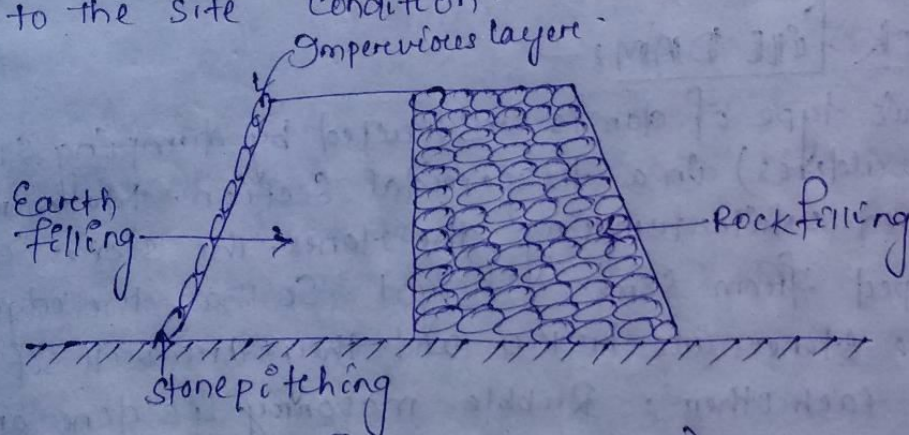 to the site condition
Impervious layer
Earth
filling
Rockfilling
Stonepitching